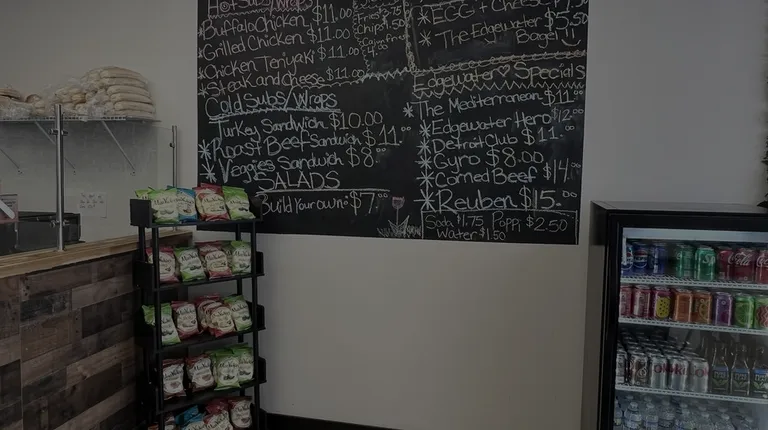 Hot Subs/Wraps
*Buffalo Chicken $11.00
*Grilled Chicken $11.00
*Chicken Teriyaki $11.00
*Steak and cheese $11.00
Fries
Chips $1.50
Cold Subs/Wraps
Turkey Sandwich $10.00
*Roast Beef Sandwich $11.00
*Veggies Sandwich $8.00
SALADS
Build your own: $7.00
*EGG + Cheese
$5.50
*The Edgewater
Bagel
Edgewater Specials
*The Mediterranean $11.00
*Edgewater Hero $12.00
*Detroit Club $11.00
*Gyro $8.00
*Corned Beef $14.00
*Reuben $15.00
Soda $1.75 Poppi $2.50
Water $1.50